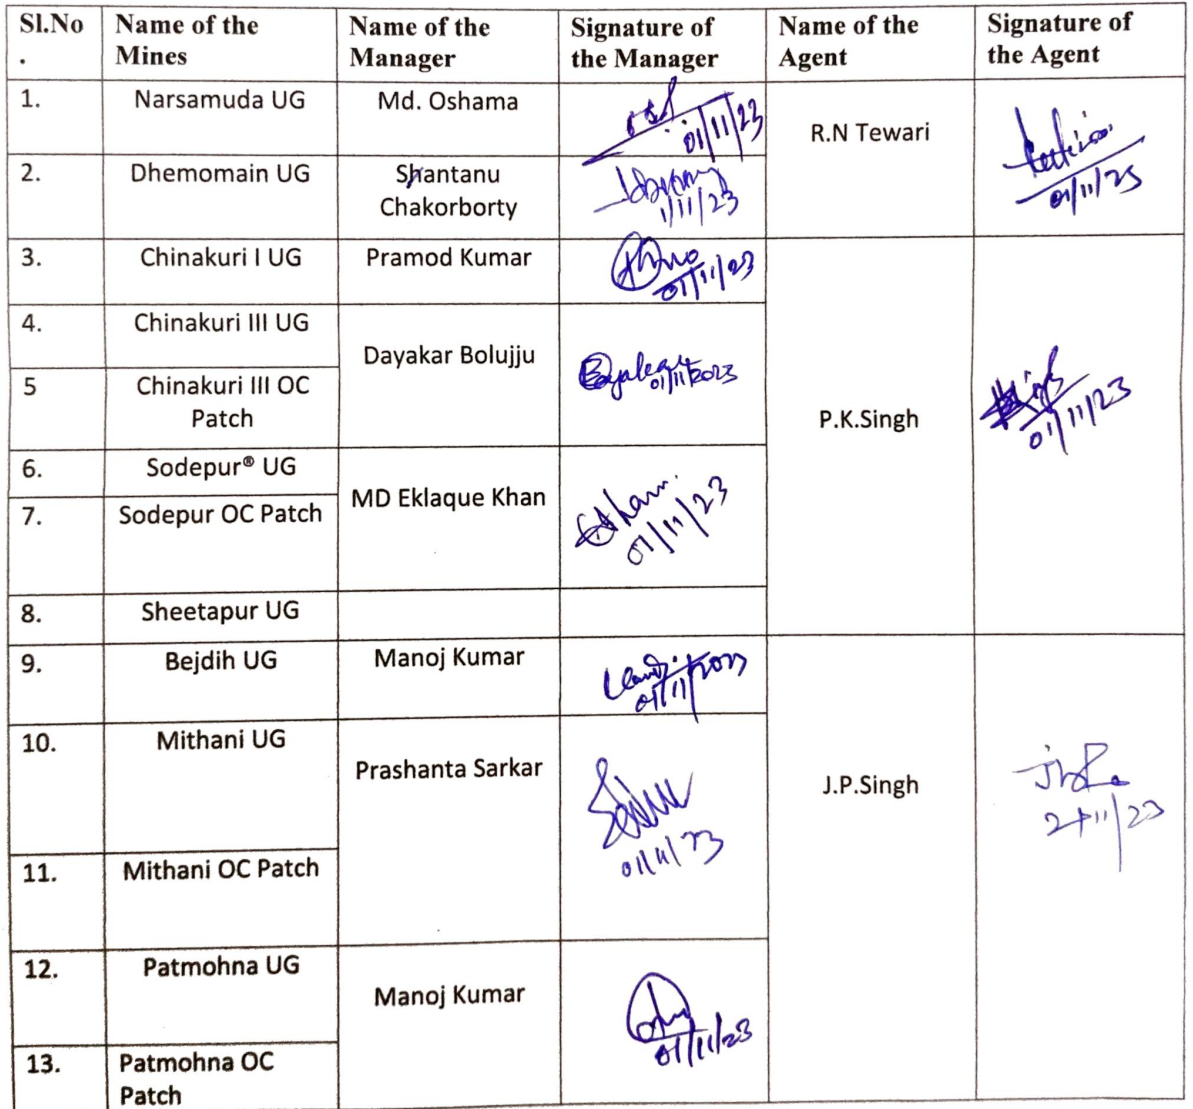 Sl.No
.
Name of the
Mines
Name of the
Manager
Signature of
the Manager
Name of the
Agent
Signature of
the Agent
1.
Narsamuda UG
Md. Oshama
01/11/23
R.N Tewari
01/11/23
2.
Dhemomain UG
Shantanu
Chakorborty
1/11/23
3.
Chinakuri I UG
Pramod Kumar
01/11/23
P.K.Singh
01/11/23
4.
Chinakuri III UG
Dayakar Bolujju
01/11/2023
5
Chinakuri III OC
Patch
6.
Sodepur® UG
MD Eklaque Khan
01/11/23
7.
Sodepur OC Patch
8.
Sheetapur UG
9.
Bejdih UG
Manoj Kumar
01/11/2023
J.P.Singh
10.
Mithani UG
Prashanta Sarkar
01/11/23
11.
Mithani OC Patch
12.
Patmohna UG
Manoj Kumar
01/11/23
13.
Patmohna OC
Patch